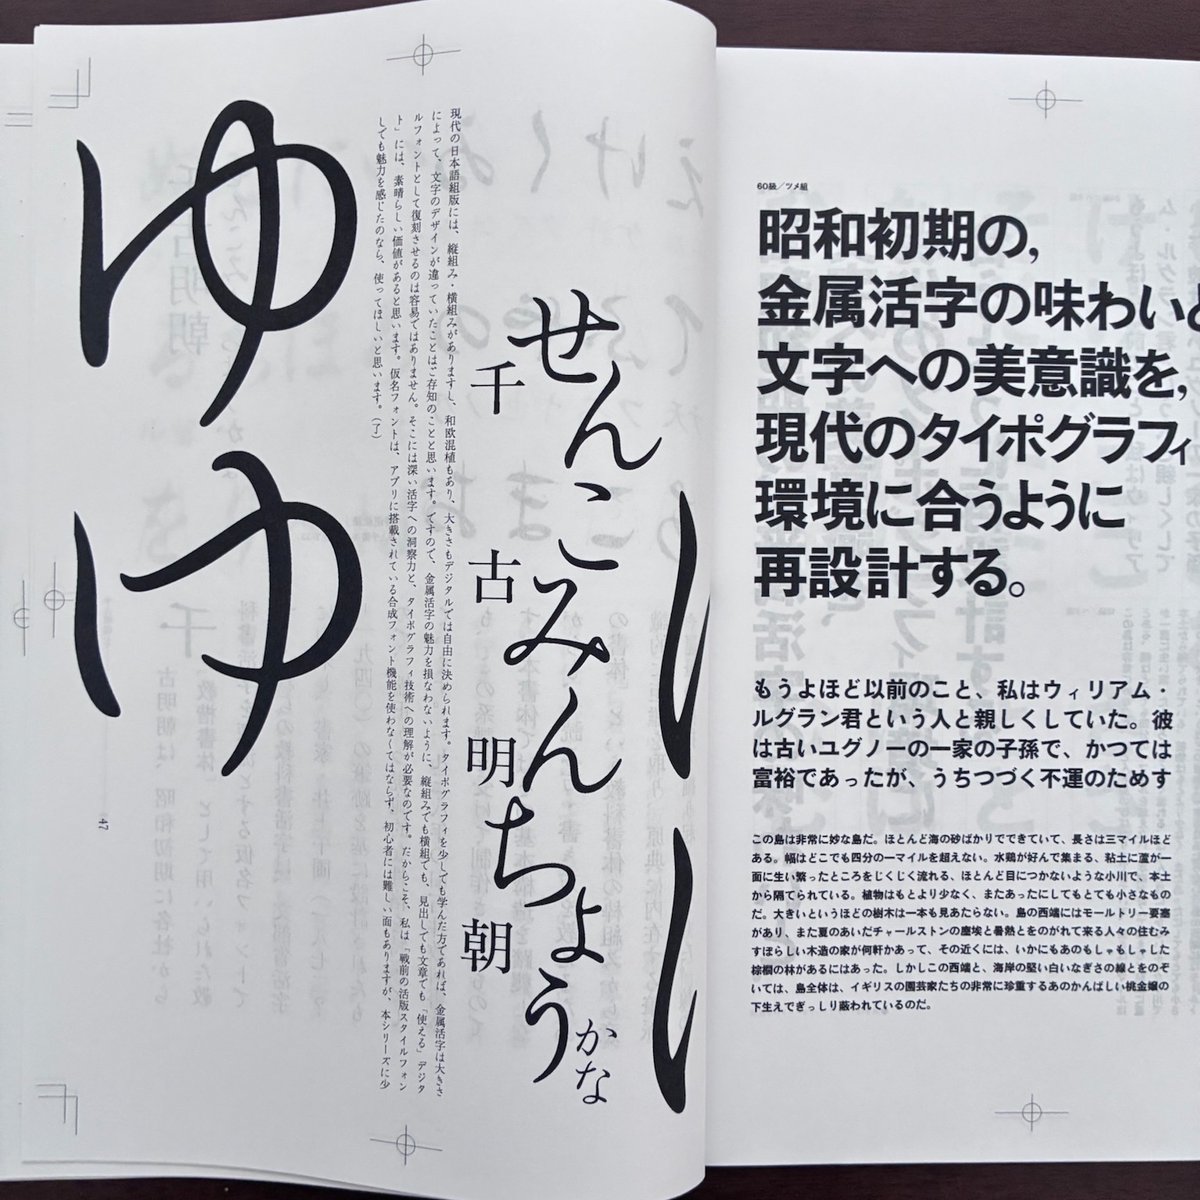 せんこみんちょうかな
千古明朝
現代の日本語組版には、縦組み・横組みがありますし、和欧混植もあり、大きさもデジタルでは自由に決められます。タイポグラフィを少しでも学んだ方であれば、金属活字は大きさ
によって、文字のデザインが違っていたことはご存知のことと思います。ですので、金属活字の魅力を損なわないように、縦組みでも横組でも、見出しでも文章でも「使える」デジタ
ルフォントとして復刻させるのは容易ではありません。そこには深い活字への洞察力と、タイポグラフィ技術への理解が必要なのです。だからこそ、私は「戦前の活版スタイルフォン
ト」には、素晴らしい価値があると思います。仮名フォントは、アプリに搭載されている合成フォント機能を使わなくてはならず、初心者には難しい面もありますが、本シリーズに少
しでも魅力を感じたのなら、使ってほしいと思います。(了)
ゆゆ
47
60級/ツメ組
昭和初期の,
金属活字の味わいと
文字への美意識を,
現代のタイポグラフィ
環境に合うように
再設計する。
もうよほど以前のこと、私はウィリアム・
ルグラン君という人と親しくしていた。彼
は古いユグノーの一家の子孫で、かつては
富裕であったが、うちつづく不運のためす
この島は非常に妙な島だ。ほとんど海の砂ばかりでできていて、長さは三マイルほど
ある。幅はどこでも四分の一マイルを超えない。水鶏が好んで集まる、粘土に蘆が一
面に生い繁ったところをじくじく流れる、ほとんど目につかないような小川で、本土
から隔てられている。植物はもとより少なく、またあったにしてもとても小さなもの
だ。大きいというほどの樹木は一本も見あたらない。島の西端にはモールトリー要塞
があり、また夏のあいだチャールストンの塵埃と暑熱とをのがれて来る人々の住むみ
すぼらしい木造の家が何軒かあって、その近くには、いかにもあのもしゃもしゃした
棕櫚の林があるにはあった。しかしこの西端と、海岸の堅い白いなぎさの線とをのぞ
いては、島全体は、イギリスの園芸家たちの非常に珍重するあのかんばしい桃金嬢の
下生えでぎっしり蔽われているのだ。